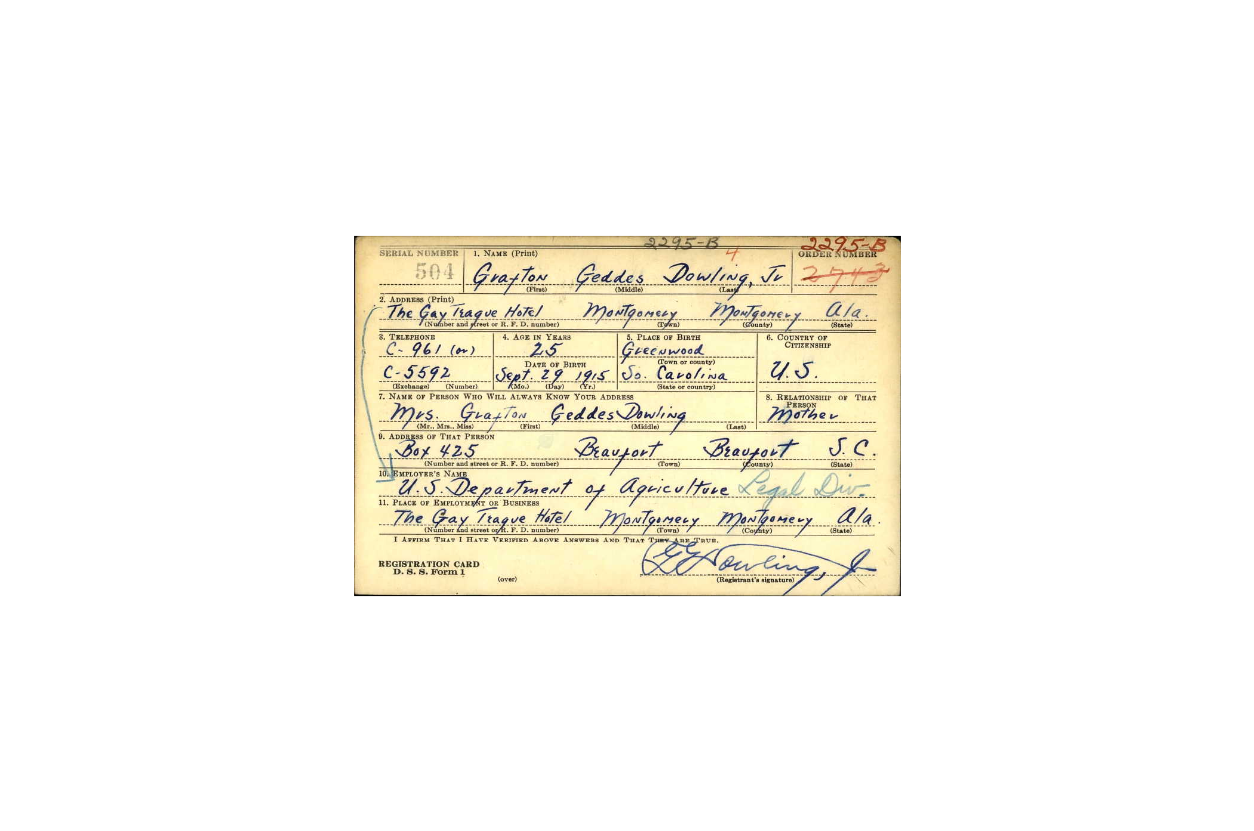 2295-B 2295-B
SERIAL NUMBER 1. NAME (Print) 4 ORDER NUMBER
504 Grafton Geddes Dowling, Jr 2743
(First) (Middle) (Last)
2. ADDRESS (Print)
The Gay Teague Hotel Montgomery Montgomery Ala.
(Number and street or R. F. D. number) (Town) (County) (State)
3. TELEPHONE 4. AGE IN YEARS 5. PLACE OF BIRTH 6. COUNTRY OF CITIZENSHIP
C-961 (or) 25 Greenwood
DATE OF BIRTH (Town or county)
C-5592 Sept. 29 1915 So. Carolina U.S.
(Exchange) (Number) (Mo.) (Day) (Yr.) (State or country)
7. NAME OF PERSON WHO WILL ALWAYS KNOW YOUR ADDRESS 8. RELATIONSHIP OF THAT PERSON
Mrs. Grafton Geddes Dowling Mother
(Mr., Mrs., Miss) (First) (Middle) (Last)
9. ADDRESS OF THAT PERSON
Box 425 Beaufort Beaufort S.C.
(Number and street or R. F. D. number) (Town) (County) (State)
10. EMPLOYER'S NAME
U.S. Department of Agriculture Legal Div.
11. PLACE OF EMPLOYMENT OR BUSINESS
The Gay Teague Hotel Montgomery Montgomery Ala.
(Number and street or R. F. D. number) (Town) (County) (State)
I AFFIRM THAT I HAVE VERIFIED ABOVE ANSWERS AND THAT THEY ARE TRUE.
GGDowling, Jr
REGISTRATION CARD
D. S. S. Form 1 (over) (Registrant's signature)